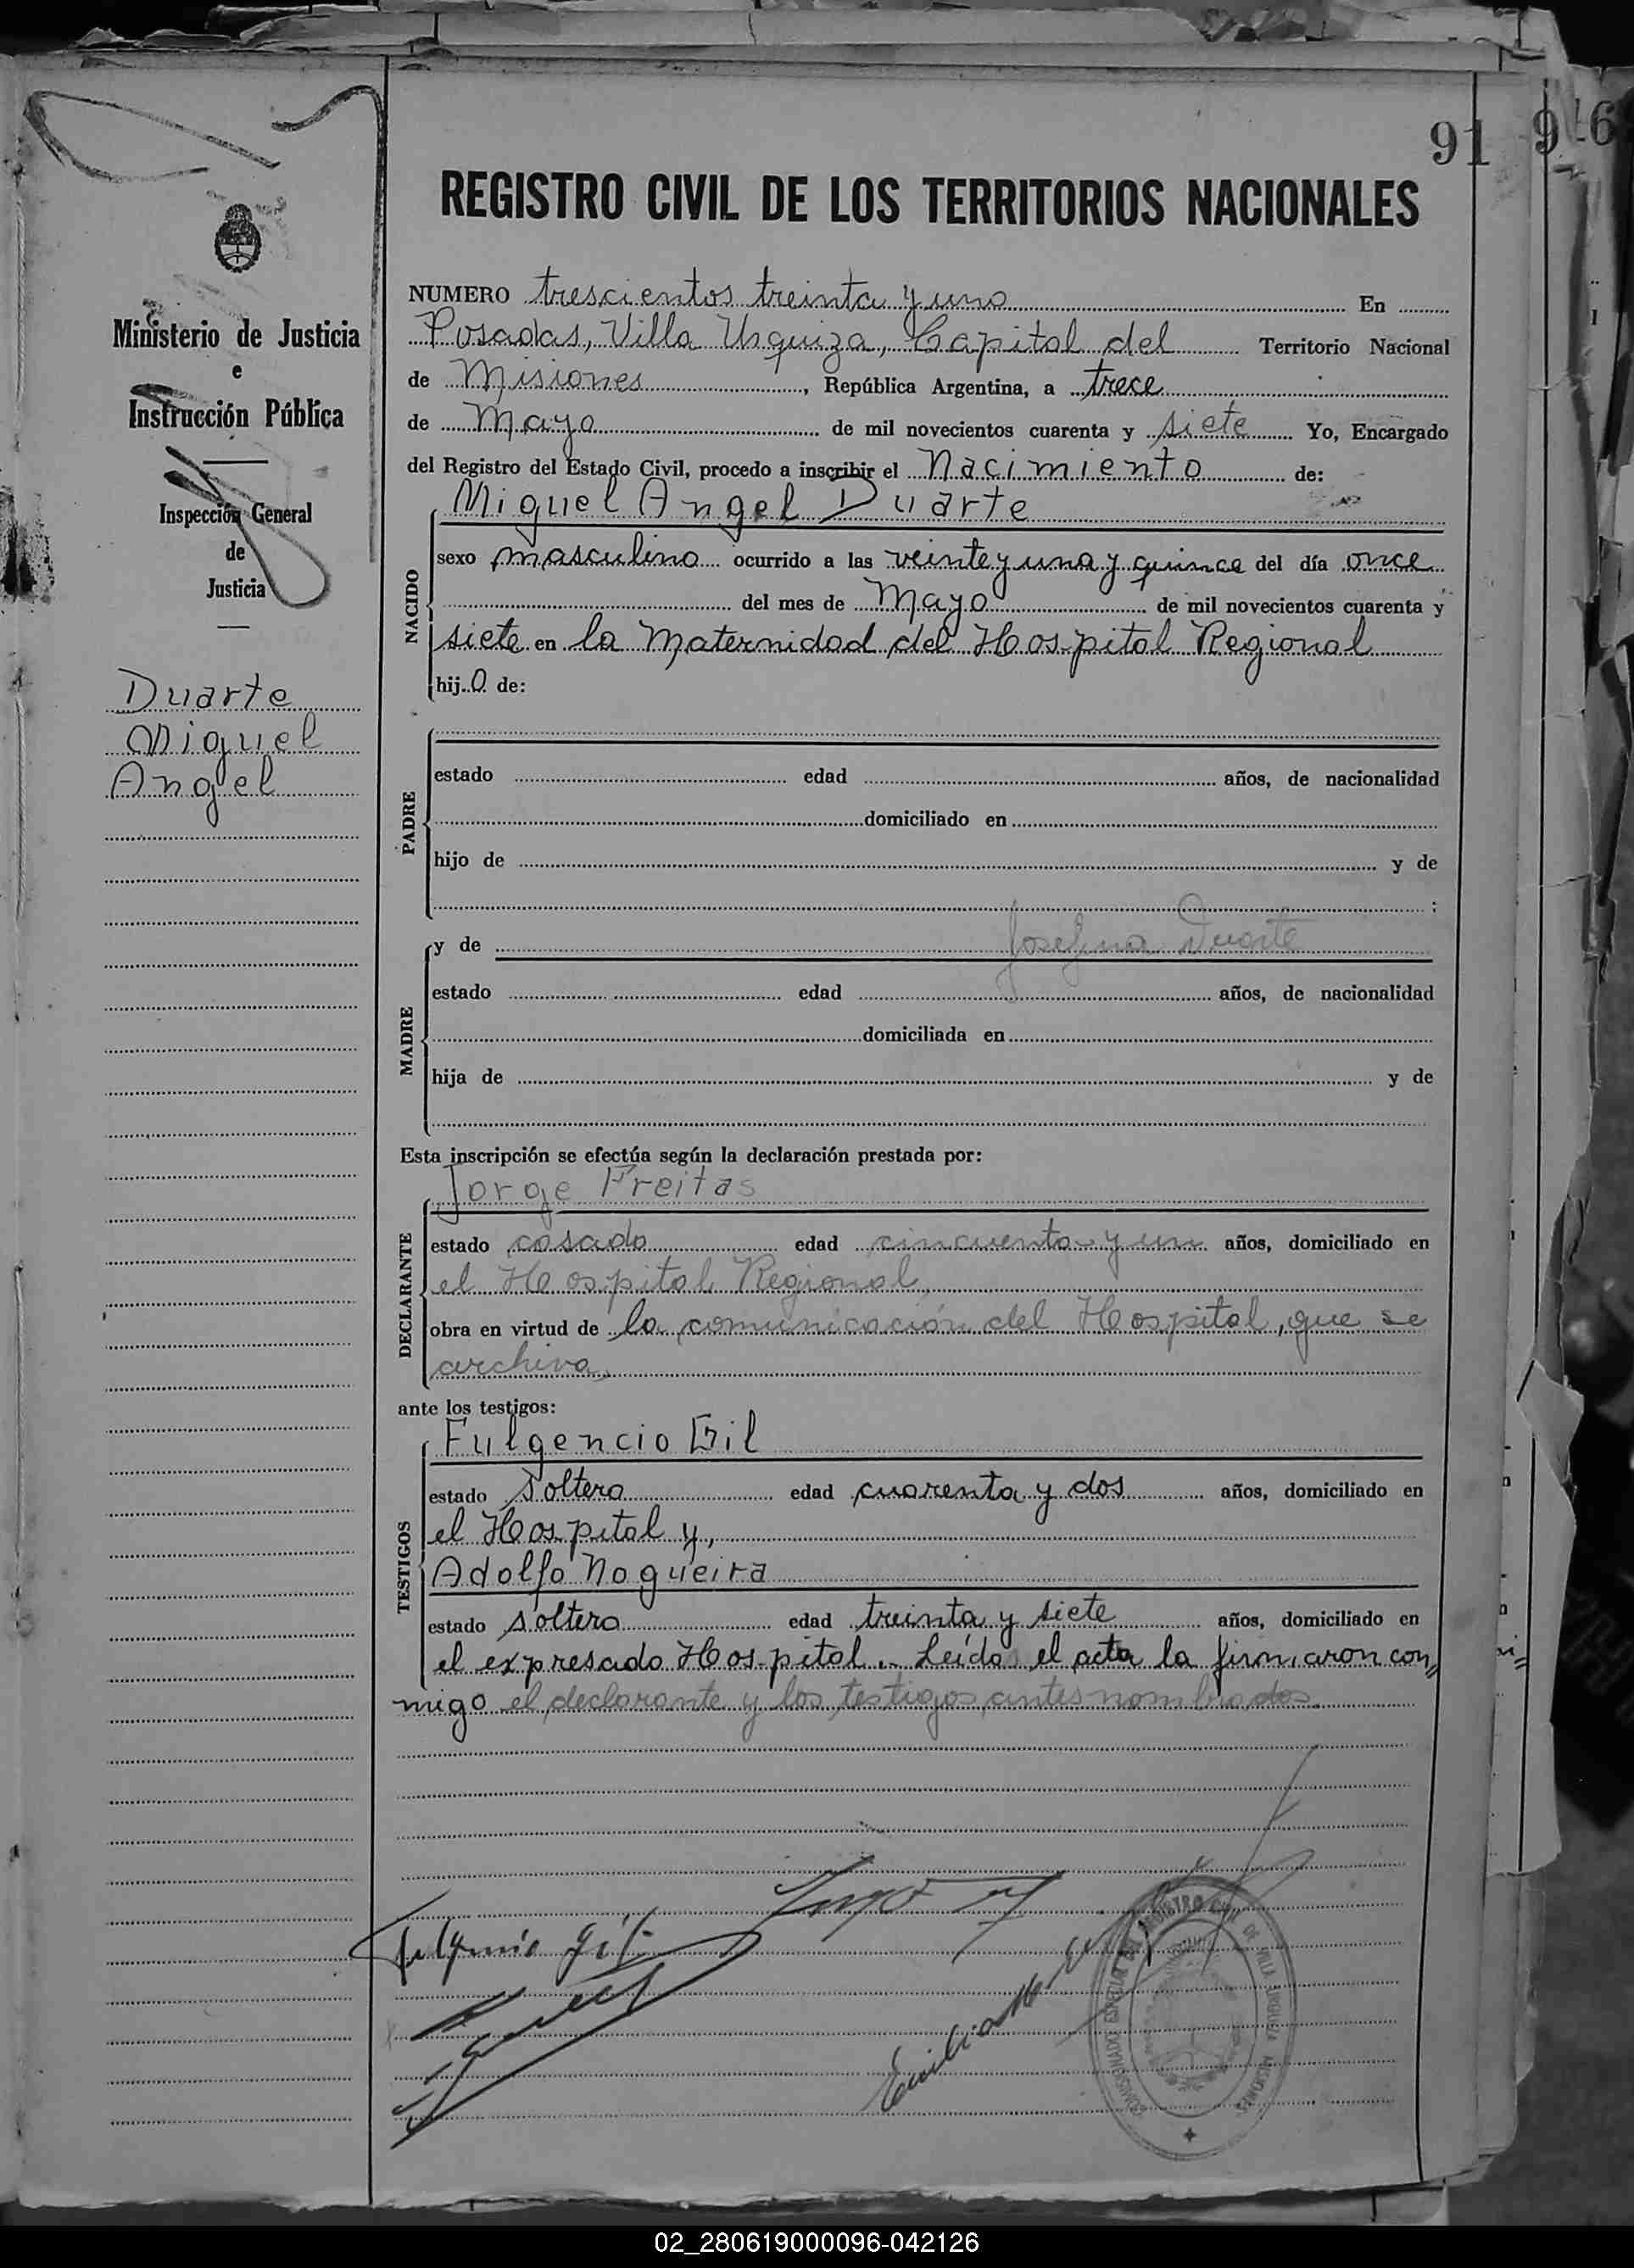 91
9
6
REGISTRO CIVIL DE LOS TERRITORIOS NACIONALES
Ministerio de Justicia
e
Instrucción Pública
Inspección General
de
Justicia
Duarte
Miguel
Angel
NUMERO trescientos treinta y uno En
Posadas, Villa Urquiza, Capital del Territorio Nacional
de Misiones, República Argentina, a trece
de Mayo de mil novecientos cuarenta y siete Yo, Encargado
del Registro del Estado Civil, procedo a inscribir el Nacimiento de:
NACIDO
Miguel Angel Duarte
sexo masculino ocurrido a las veinte y una y quince del día once
del mes de Mayo de mil novecientos cuarenta y
siete en la Maternidad del Hospital Regional
hijo de:
PADRE
estado edad años, de nacionalidad
domiciliado en
hijo de y de
;
MADRE
y de Josefina Duarte
estado edad años, de nacionalidad
domiciliada en
hija de y de
Esta inscripción se efectúa según la declaración prestada por:
DECLARANTE
Jorge Freitas
estado casado edad cincuenta y un años, domiciliado en
el Hospital Regional,
obra en virtud de la comunicación del Hospital, que se
archiva,
ante los testigos:
TESTIGOS
Fulgencio Gil
estado soltero edad cuarenta y dos años, domiciliado en
el Hospital y,
Adolfo Nogueira
estado soltero edad treinta y siete años, domiciliado en
el expresado Hospital. Leída el acta la firmaron con
migo el declarante y los testigos antes nombrados.
Fulgencio Gil
REGISTRO CIVIL DE VILLA URQUIZA MISIONES
02_280619000096-042126